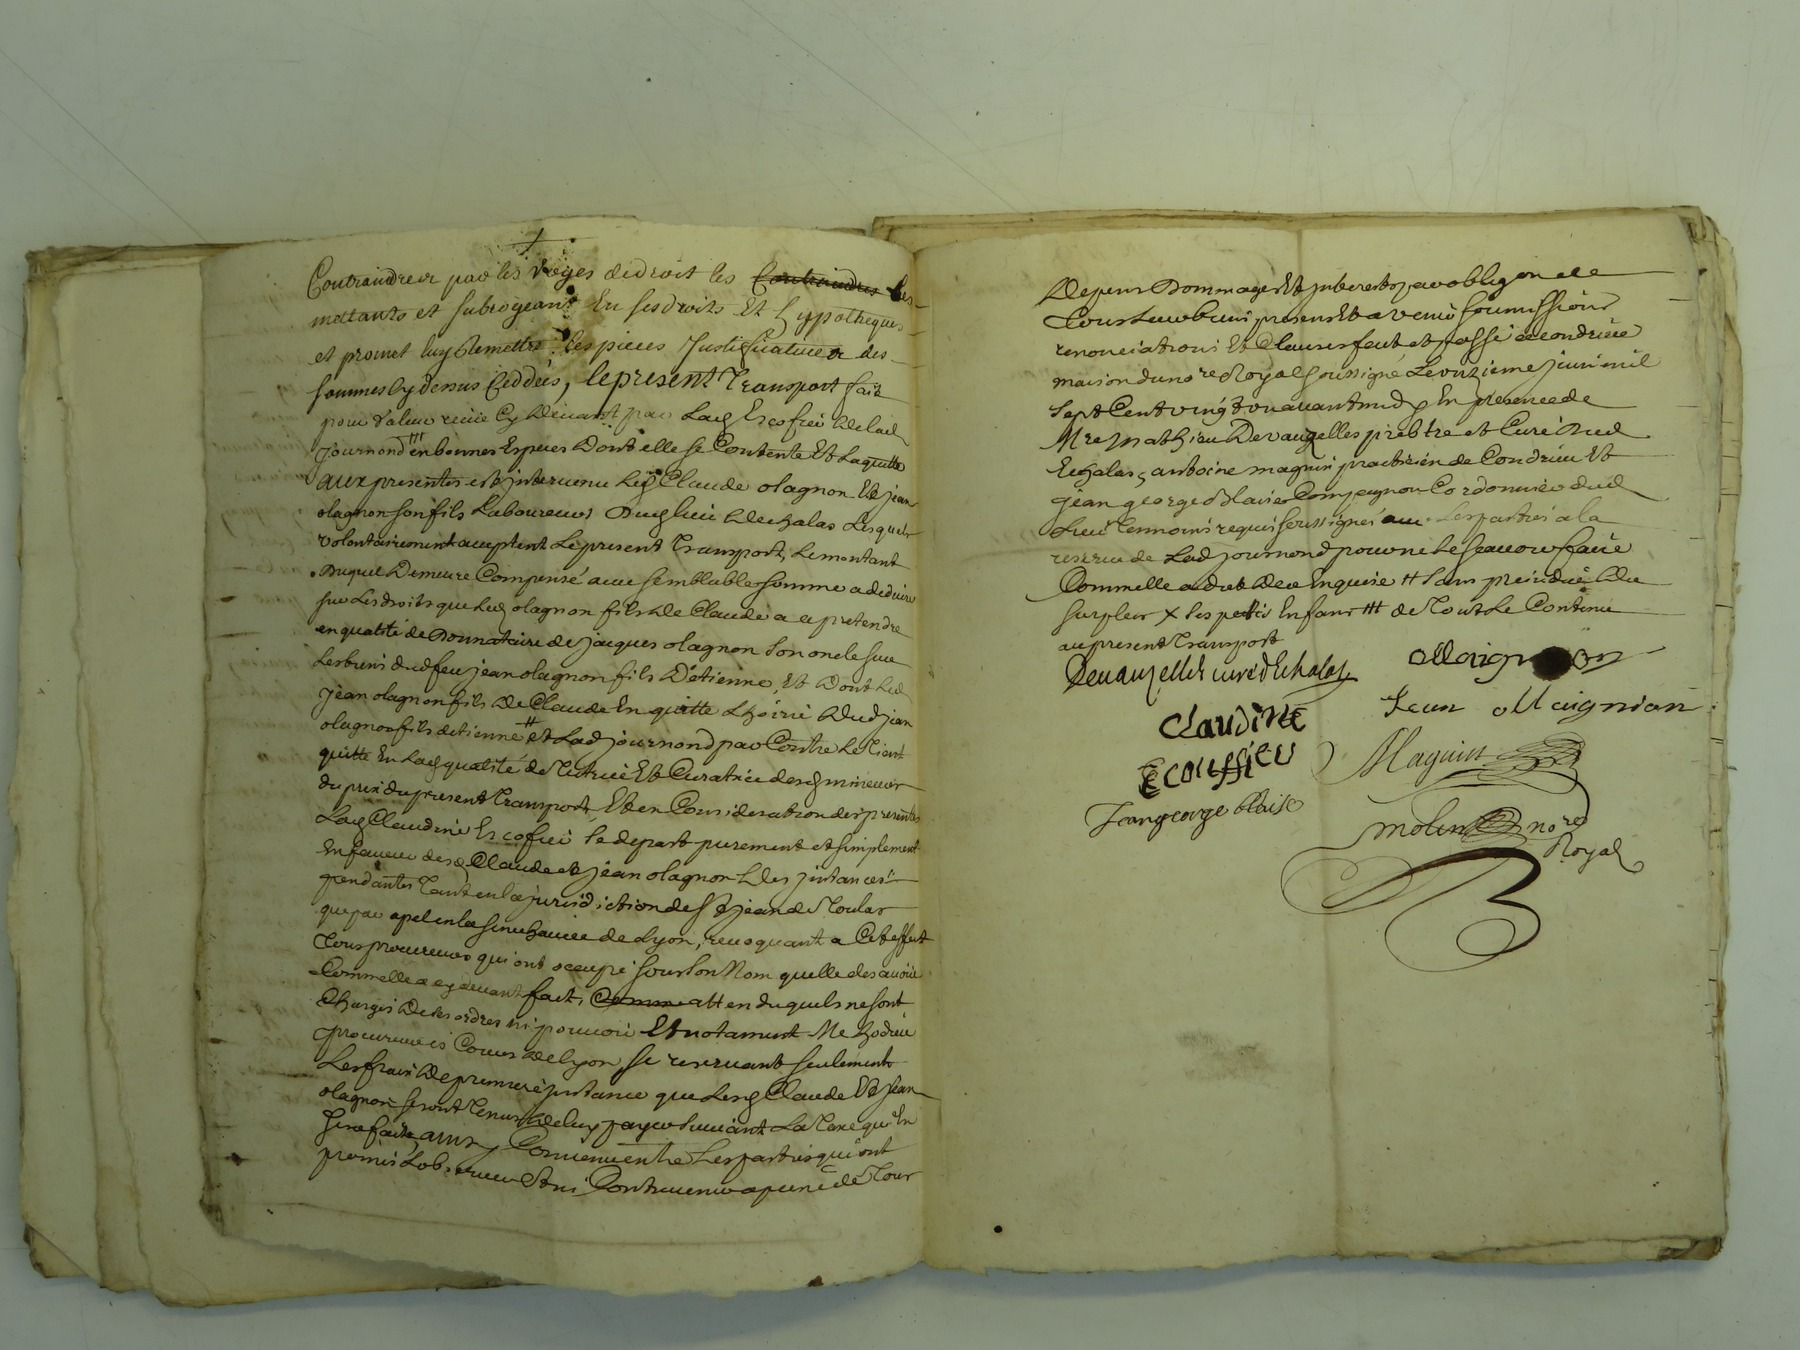 Contraindre par les voyes de droit les Contraindre les
mettants et subrogeant En ses droits Et hyppotheques
et promet luy Remettre les pieces Justificatives des
sommes cy dessus Ceddées, le present Transport fait
pour valeur reçue Cy devant par Lad Escofier de lad
Journond en bonnes Especes Dont elle se Contente Et Laquitte
aux presentes est intervenu Led Claude olagnon Et jean
olagnon son fils Laboureurs Dud lieu dechalas Lesquels
volontairement acceptent Le present Transport, Le montant
Duquel Demeure Compensé avec semblable somme a deduire
sur Les droits que Led olagnon fils de Claude a a pretendre
en qualité de Donnataire de jacques olagnon son oncle sur
Les biens dud feu jean olagnon fils D'étienne, Et Dont Led
jean olagnon fils de Claude En quitte Lhoirie dud jean
olagnon fils detienne # et Lad journond par Contre Le Tient
quitte En Lad qualité de Tutrice Et Curatrice desd mineurs
du prix du present Transport, Et en Consideration des presentes
Lad Claudine Escofier se depart purement et simplement
En faveur desd Claude et jean olagnon Des instances
pendantes Tant en la jurisdiction de St jean de Toulas
que par apel en la senechaucée de Lyon, revoquant a Cet effect
Tous procureurs qui ont occupé sous son Nom quelle desavoüe
Commelle a cy devant fait, Comme attendu quils ne sont
Chargés De ses ordres ni pouvoir Et notament Me hodieu
procureur es Cours de Lyon, se reservant seulement
Les frais De premiere instance que Lesd Claude Et Jean
olagnon seront Tenus de luy payer suivant La Taxe qui En
sera faite, ainsy Convenu entre Les parties qui ont
promis Lobserver Et ni Contrevenir a peine de Tous
Depens Dommages Et interests par obligon de
Tous Leurs biens presens Et a venir soumissions
renonciations Et Clauses fait et passé a Condrieu
maison du nore Royal soussigné Le onzieme juin mil
sept Cent vingt avant midy En presence de
Mre mathieu Devauzelles prebtre et Curé Dud
Echalas, antoine maguin practicien de Condrieu Et
jean george Blaise Compagnon Cordonnier dud
Lieu Temoins requis soussignés avec Les parties a la
reserve de Lad journond pour ne le sçavoir faire
Commelle a dit De ce Enquise # sans prejudice du
surplus x ses petits Enfans ### de Tout Le Contenu
au present Transport
Devauzelles curé dEchalas
ollaignon
Claudine
Ecouffieu
Jean ollaignian
Maguin
Jean george blaise
Molin nore
Royal